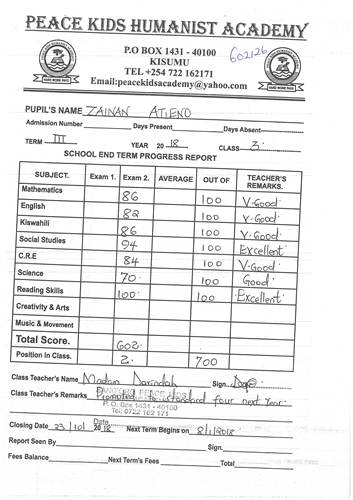 PEACE KIDS HUMANIST ACADEMY
P.O BOX 1431 - 40100
KISUMU
TEL +254 722 162171
Email:peacekidsacademy@yahoo.com
602126
HARD WORK PAYS
HARD WORK PAYS
PUPIL'S NAME ZAINAN ATIENO
Admission Number Days Present Days Absent
TERM III YEAR 2018 CLASS 3.
SCHOOL END TERM PROGRESS REPORT
SUBJECT. Exam 1. Exam 2. AVERAGE OUT OF TEACHER'S REMARKS.
Mathematics 86 100 V-Good.
English 82 100 V-Good.
Kiswahili 86 100 V-Good.
Social Studies 94 100 Excellent
C.R.E 84 100 V-Good
Science 70. 100 Good
Reading Skills 100. 100 Excellent.
Creativity & Arts
Music & Movement
Total Score. 602.
Position in Class. 2. 700
Class Teacher's Name Madam Sign.
Class Teacher's Remarks Promoted to standard four next year.
P. O. Box 1431 - 40100
Tel: 0722 162 171
Date
Closing Date 23/10/2018 Next Term Begins on 8/1/2018
Report Seen By Sign.
Fees Balance Next Term's Fees Total